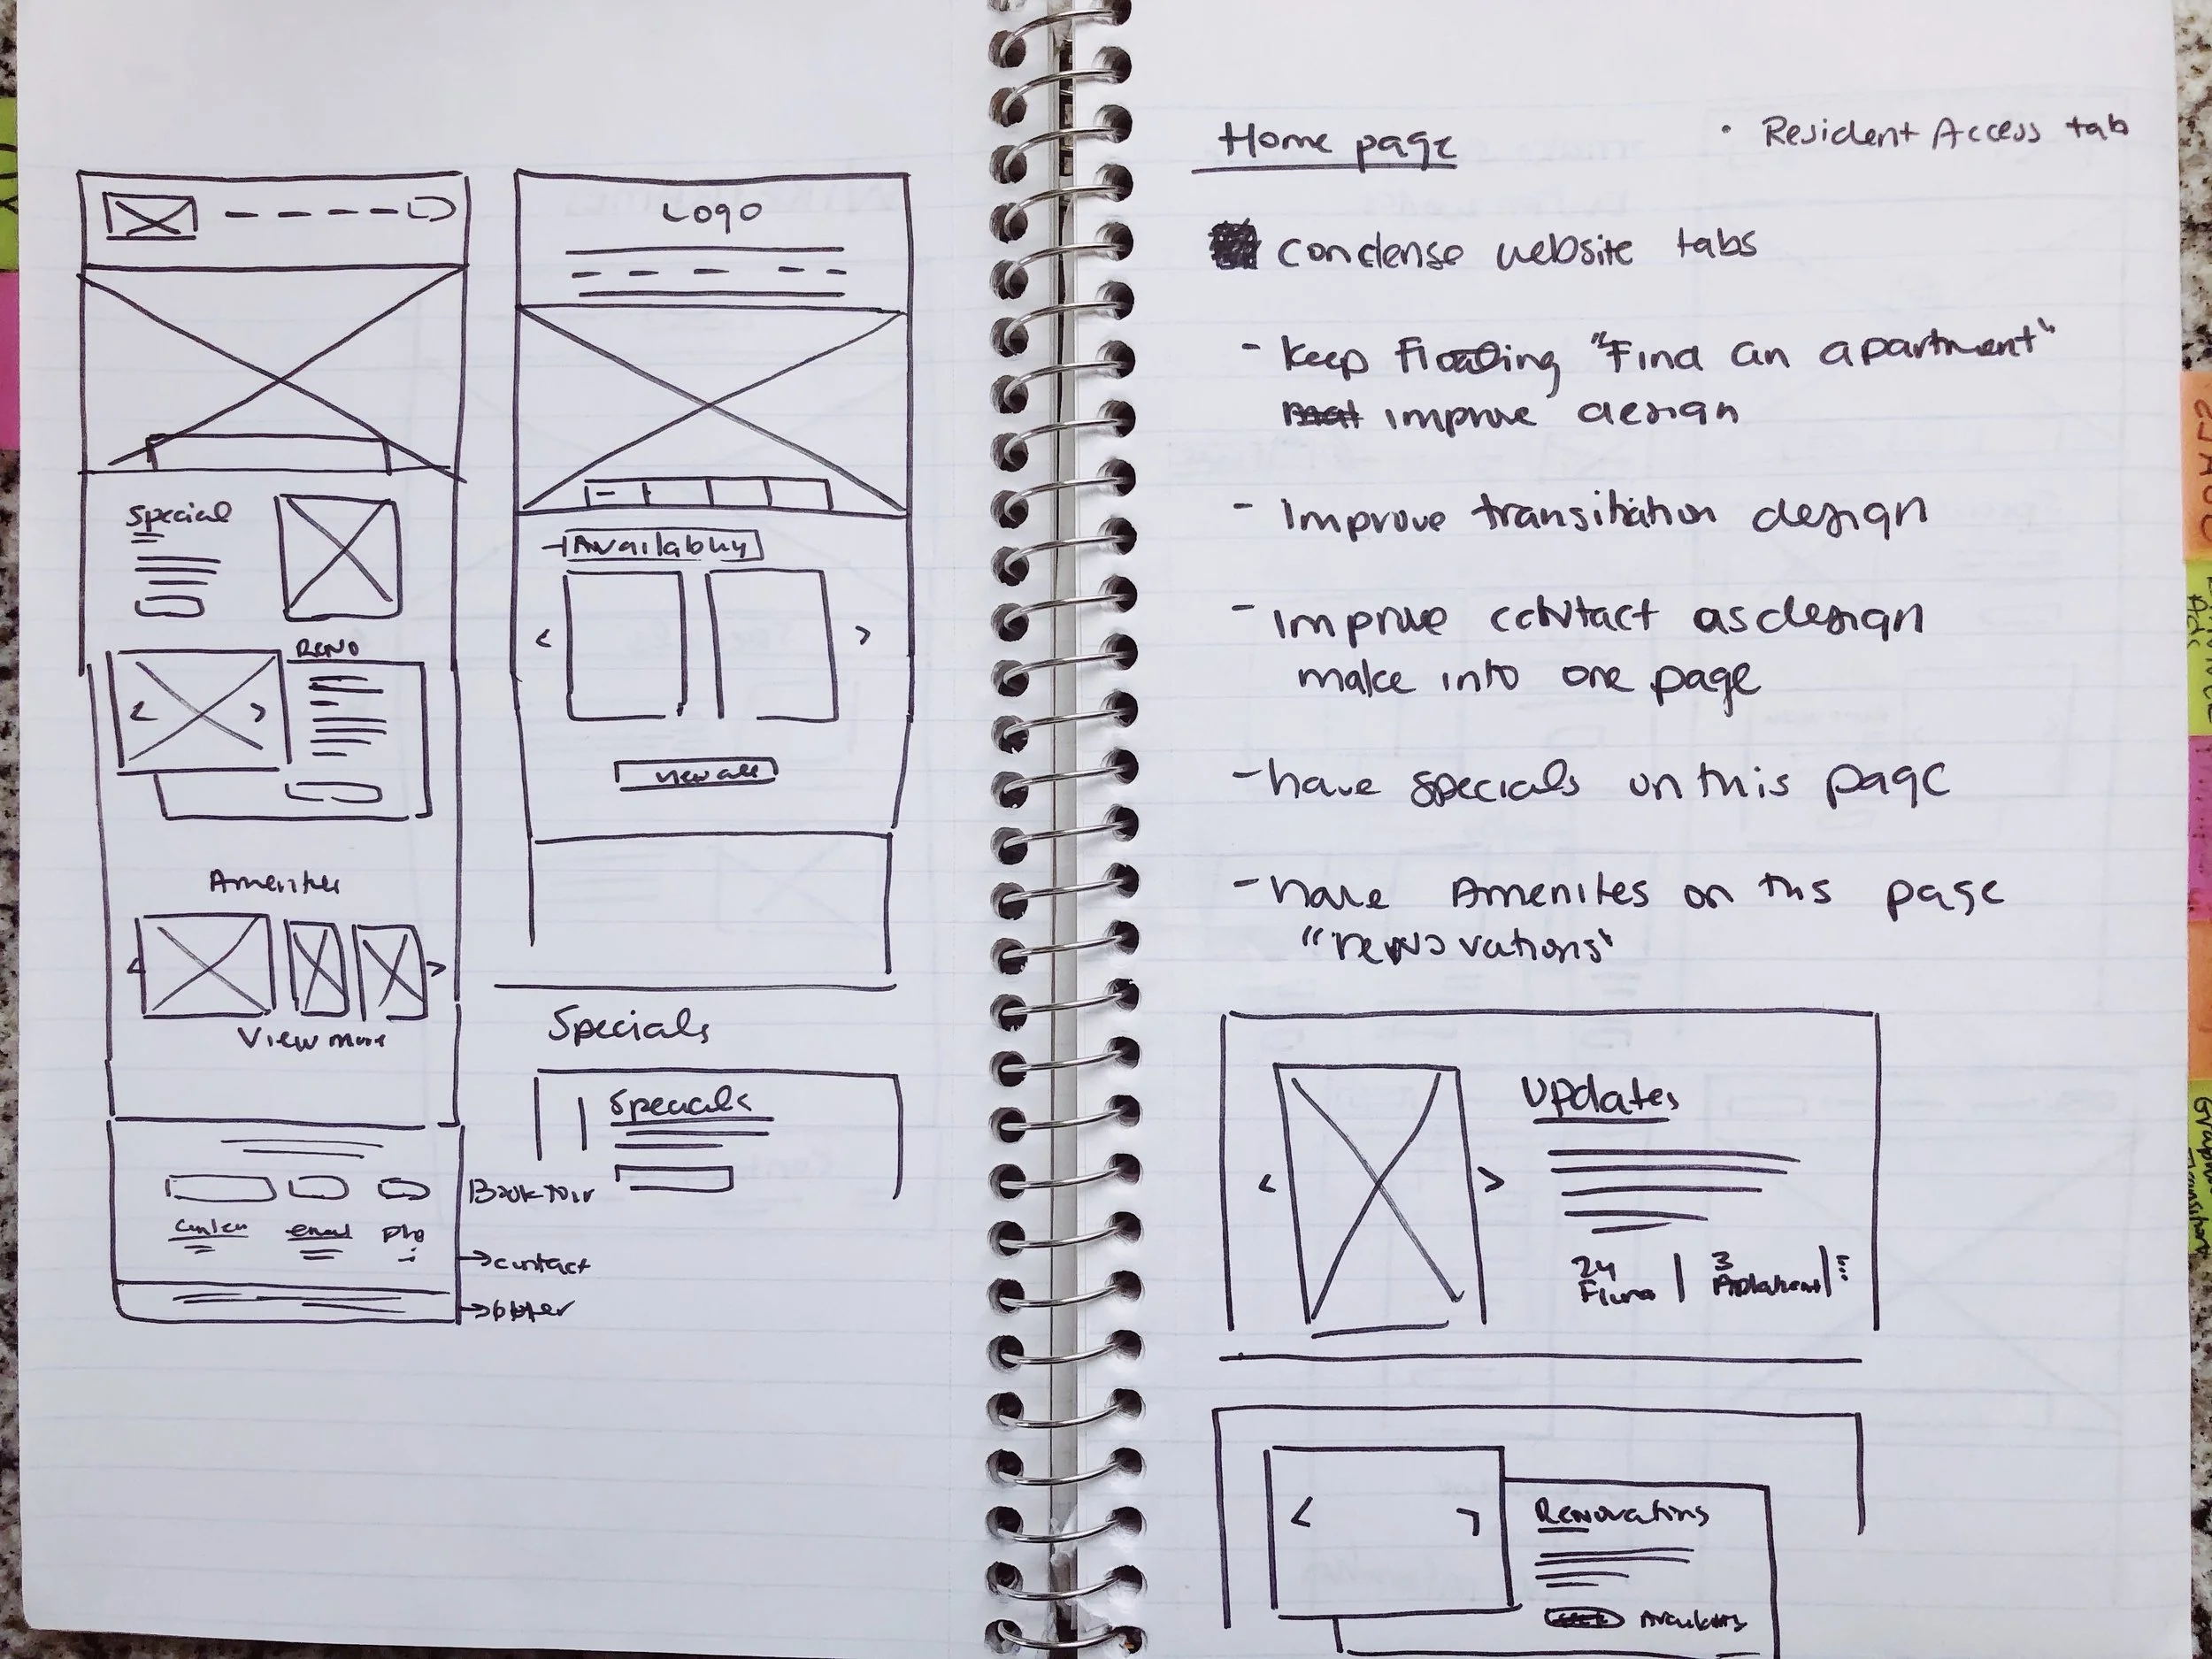 Special
RENO
Amenities
View more
email
Pho
Book tour
contact
footer
Logo
Availability
view all
Specials
Specials
Home page
• Resident Access tab
condense website tabs
- keep Floating "Find an apartment"
improve design
- Improve transitition design
- improve contact as design
make into one page
- have specials on this page
- have Amenites on this page
"renovations"
Updates
24
3
Renovations